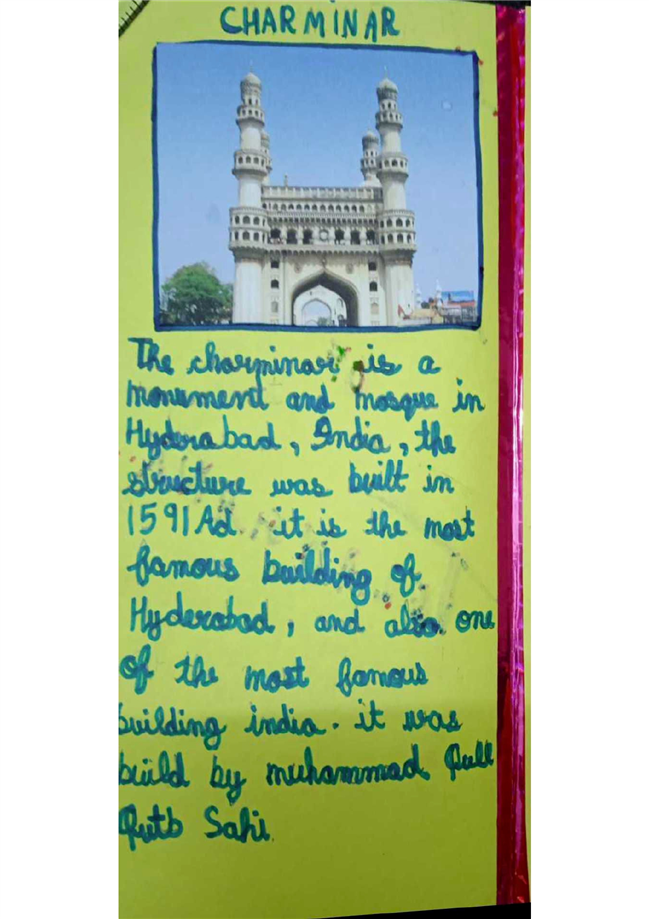 CHARMINAR
The charminar is a
monument and mosque in
Hyderabad, India, the
structure was built in
1591 Ad it is the most
famous building of
Hyderabad, and also one
of the most famous
building india. it was
build by muhammad Qull
Qutb Sahi